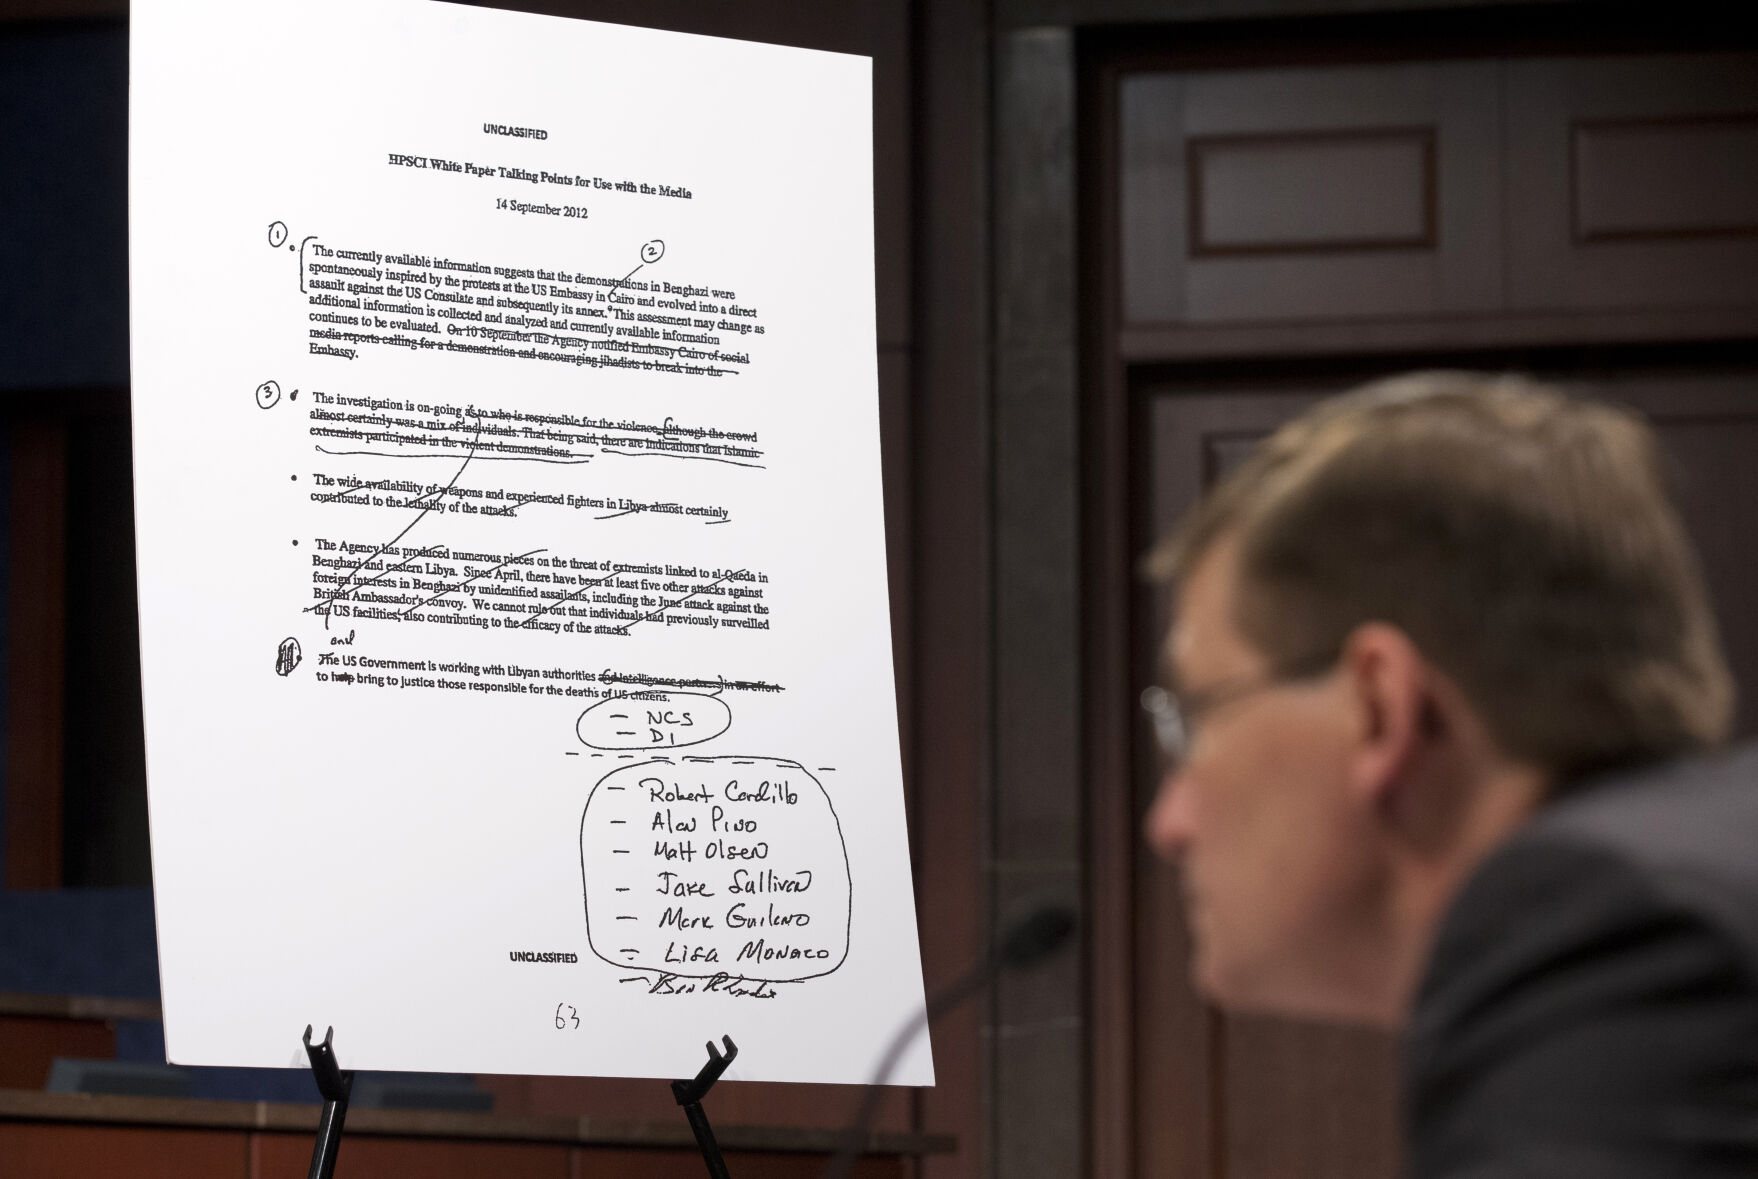 UNCLASSIFIED
HPSCI White Paper Talking Points for Use with the Media
14 September 2012
1
2
• The currently available information suggests that the demonstrations in Benghazi were
spontaneously inspired by the protests at the US Embassy in Cairo and evolved into a direct
assault against the US Consulate and subsequently its annex. This assessment may change as
additional information is collected and analyzed and currently available information
continues to be evaluated. On 10 September the Agency notified Embassy Cairo of social
media reports calling for a demonstration and encouraging jihadists to break into the
Embassy.
3
• The investigation is on-going as to who is responsible for the violence, although the crowd
almost certainly was a mix of individuals. That being said, there are indications that Islamic
extremists participated in the violent demonstrations.
• The wide availability of weapons and experienced fighters in Libya almost certainly
contributed to the lethality of the attacks.
• The Agency has produced numerous pieces on the threat of extremists linked to al-Qaeda in
Benghazi and eastern Libya. Since April, there have been at least five other attacks against
foreign interests in Benghazi by unidentified assailants, including the June attack against the
British Ambassador's convoy. We cannot rule out that individuals had previously surveilled
the US facilities, also contributing to the efficacy of the attacks.
and
The US Government is working with Libyan authorities and intelligence partners in an effort
to help bring to justice those responsible for the deaths of US citizens.
— NCS
— DI
— Robert Cardillo
— Alan Pino
— Matt Olsen
— Jake Sullivan
— Mark Guilano
— Lisa Monaco
UNCLASSIFIED
— Ben Rhodes
63